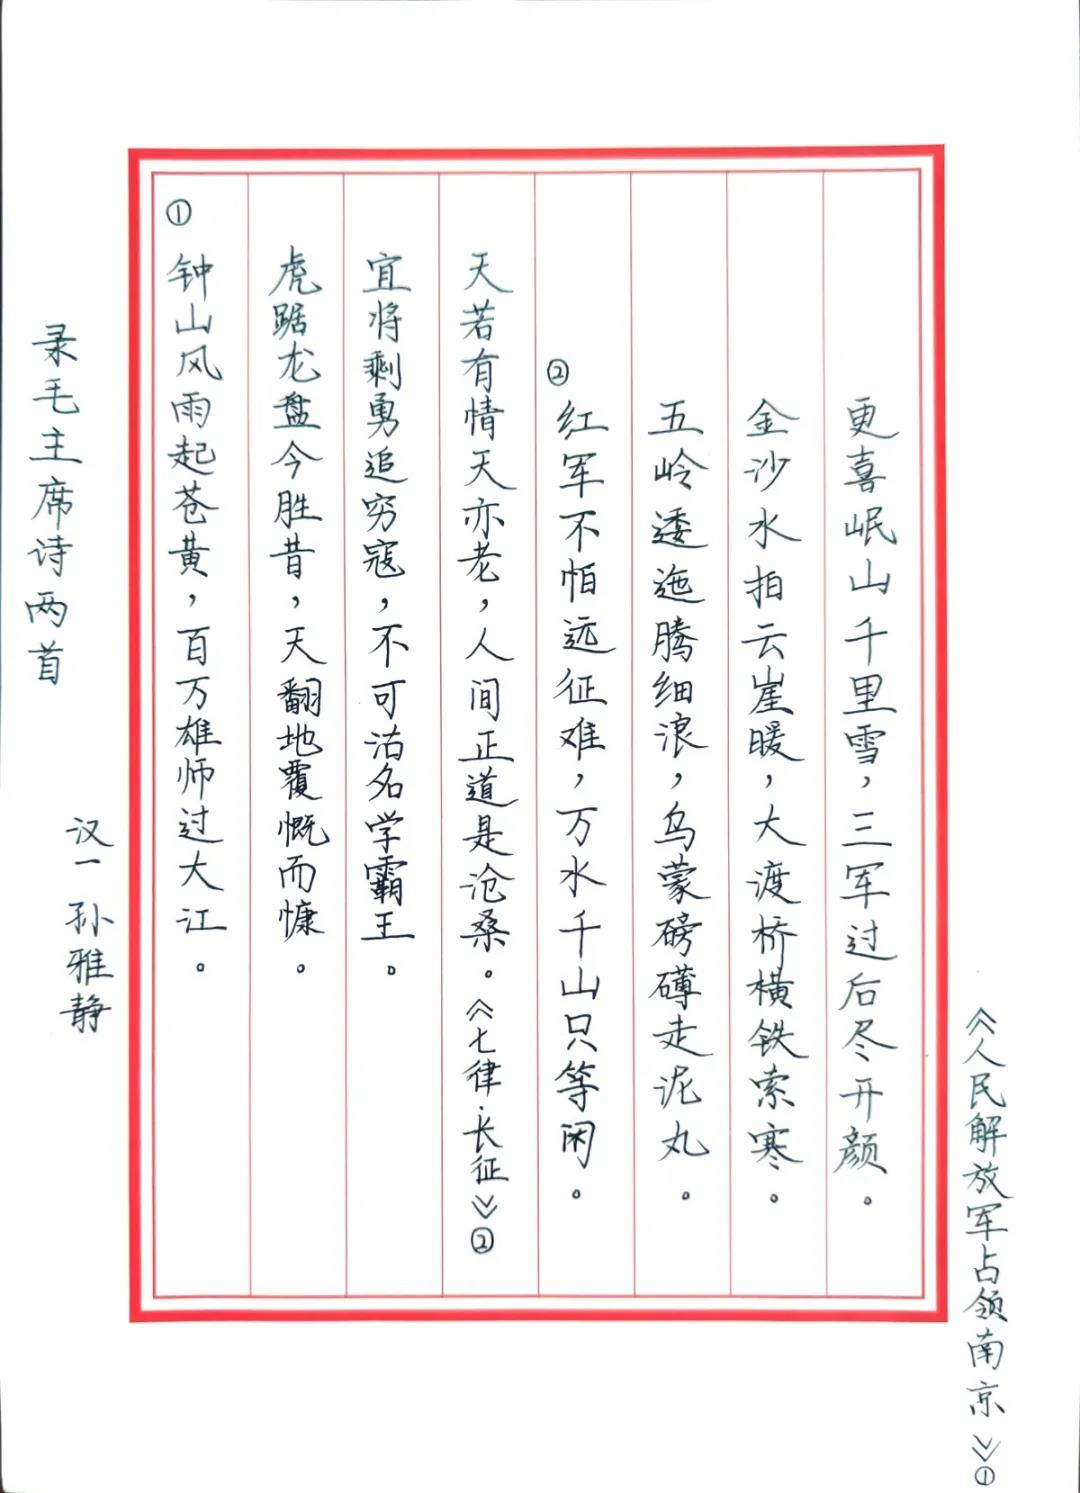 录毛主席诗两首
汉一 孙雅静
①钟山风雨起苍黄，百万雄师过大江。
虎踞龙盘今胜昔，天翻地覆慨而慷。
宜将剩勇追穷寇，不可沽名学霸王。
天若有情天亦老，人间正道是沧桑。《七律·长征》②
②红军不怕远征难，万水千山只等闲。
五岭逶迤腾细浪，乌蒙磅礴走泥丸。
金沙水拍云崖暖，大渡桥横铁索寒。
更喜岷山千里雪，三军过后尽开颜。
《人民解放军占领南京》①